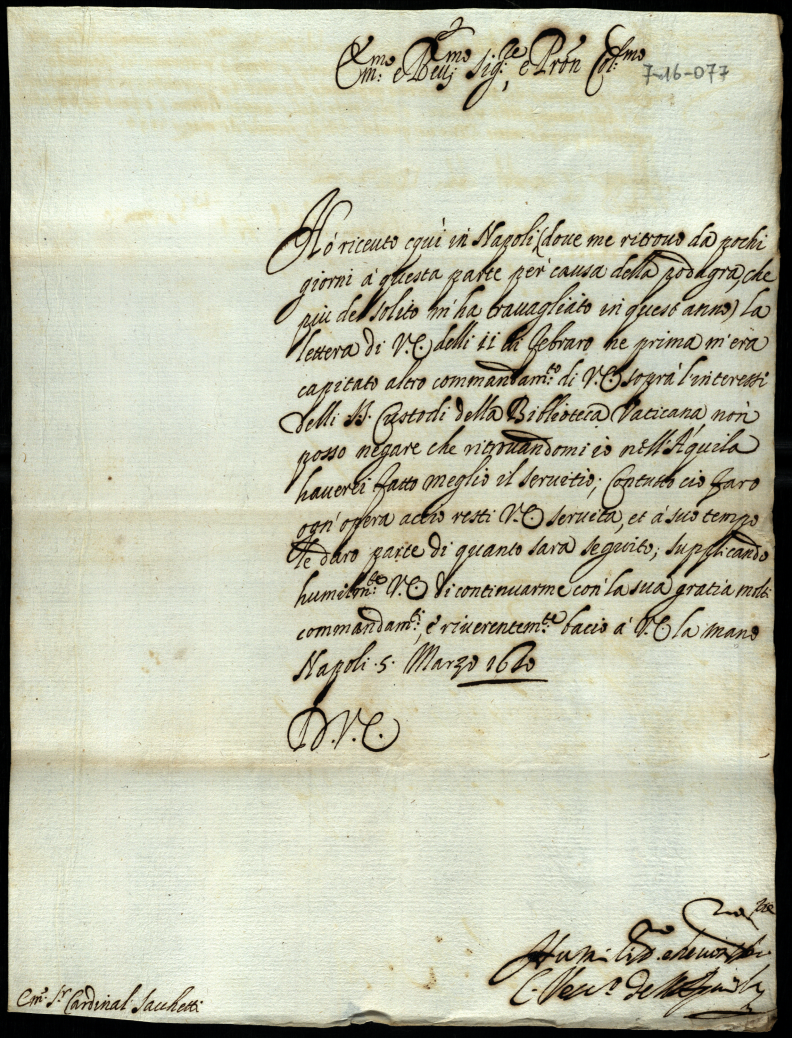 Em.mo e Rev.mo Sig.re e Pron Col.mo
7-16-077
Hó riceuto cqui in Napoli (doue me ritrouo da pochi
giorni á questa parte per causa della podagra, che
più del solito m'ha trauagliato in quest'anno) la
lettera di V.E. delli 11 di febraro ne prima m'era
capitato altro commandam.to di V.E. sopra l'interessi
delli SS. Custodi della Biblioteca Vaticana non
posso negare che ritrouandomi io nell'Aquila
hauerei fatto meglio il seruitio; Contutto ciò farò
ogn'opera acciò resti V.E. seruita, et á suo tempo
le darò parte di quanto sarà seguito; supplicando
humilm.te V.E. di continuarme con la sua gratia molti
commandam.ti, e riuerentem.te bacio á V.E. la mano
Napoli .5. Marzo 1660
D.V.E.
C. Vesc.o dell'Aquila
Em.o S.r Cardinal Sacchetti